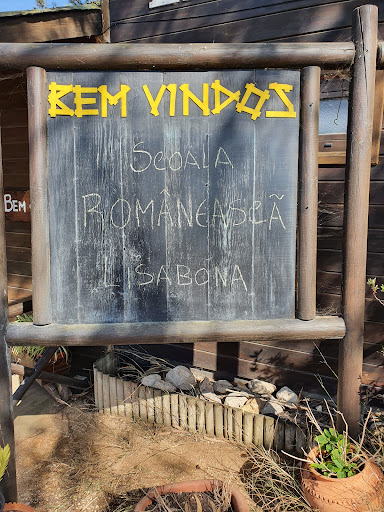 BEM VINDOS
ȘCOALA
ROMÂNEASCĂ
LISABONA
BEM